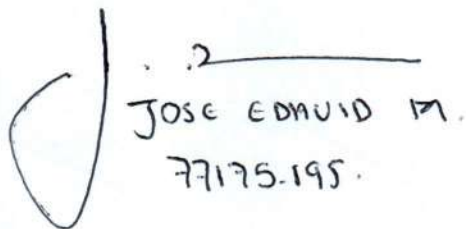 JOSE EDAUID M.
77175.195.